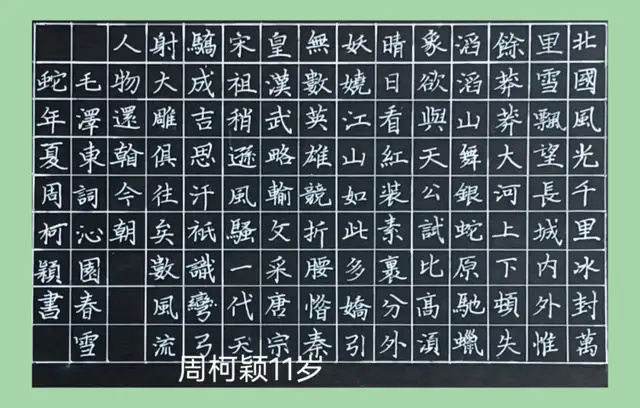 北國風光千里冰封萬
里雪飄望長城內外惟
餘莽莽大河上下頓失
滔滔山舞銀蛇原馳蠟
象欲與天公試比高湏
晴日看紅裝素裹分外
妖嬈江山如此多嬌引
無數英雄競折腰惜秦
皇漢武略輸文采唐宗
宋祖稍遜風騷一代天
驕成吉思汗祇識彎弓
射大雕俱往矣數風流
人物還翰今朝
毛澤東詞沁園春雪
蛇年夏周柯穎書
周柯颖11岁